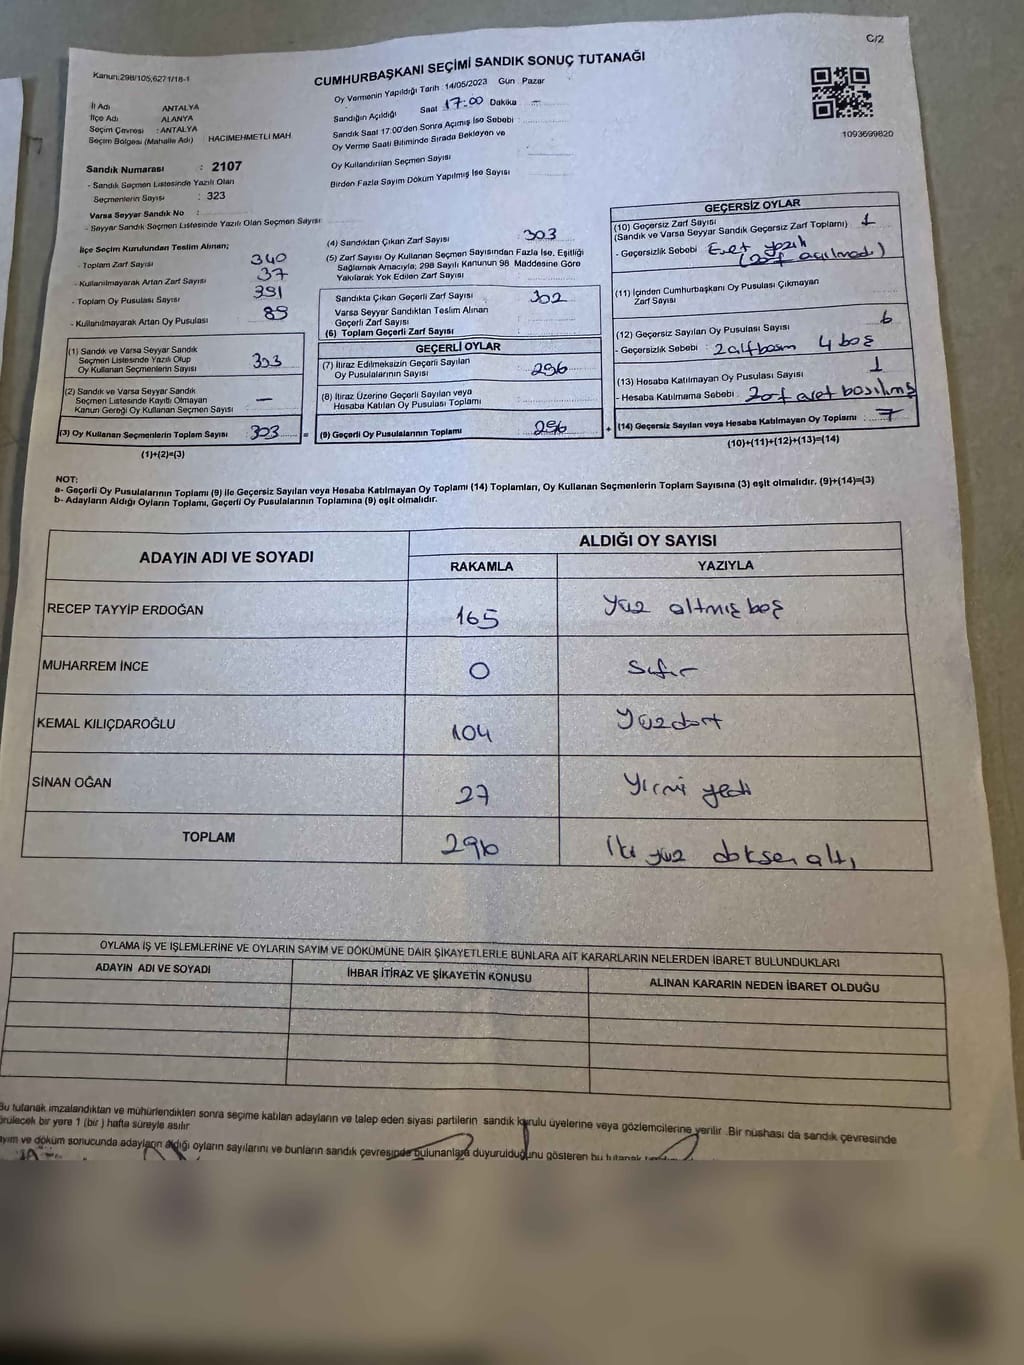 C/2
Kanun:298/105,6271/18-1
CUMHURBAŞKANI SEÇİMİ SANDIK SONUÇ TUTANAĞI
Oy Vermenin Yapıldığı Tarih : 14/05/2023 Gün : Pazar
İl Adı : ANTALYA
İlçe Adı : ALANYA
Seçim Çevresi : ANTALYA
Seçim Bölgesi (Mahalle Adı) : HACIMEHMETLİ MAH.
Sandığın Açıldığı Saat 17:00 Dakika —
Sandık Saat 17:00'den Sonra Açımış İse Sebebi :
Oy Verme Saati Bitiminde Sırada Bekleyen ve
Oy Kullandırılan Seçmen Sayısı
Birden Fazla Sayım Döküm Yapılmış İse Sayısı
1093699820
Sandık Numarası : 2107
- Sandık Seçmen Listesinde Yazılı Olan
Seçmenlerin Sayısı : 323
Varsa Seyyar Sandık No :
- Seyyar Sandık Seçmen Listesinde Yazılı Olan Seçmen Sayısı
İlçe Seçim Kurulundan Teslim Alınan;
- Toplam Zarf Sayısı 340
- Kullanılmayarak Artan Zarf Sayısı 37
- Toplam Oy Pusulası Sayısı 391
- Kullanılmayarak Artan Oy Pusulası 89
(1) Sandık ve Varsa Seyyar Sandık
Seçmen Listesinde Yazılı Olup
Oy Kullanan Seçmenlerin Sayısı 303
(2) Sandık ve Varsa Seyyar Sandık
Seçmen Listesinde Kayıtlı Olmayan
Kanun Gereği Oy Kullanan Seçmen Sayısı —
(3) Oy Kullanan Seçmenlerin Toplam Sayısı 303 =
(1)+(2)=(3)
(4) Sandıktan Çıkan Zarf Sayısı 303
(5) Zarf Sayısı Oy Kullanan Seçmen Sayısından Fazla İse, Eşitliği
Sağlamak Amacıyla; 298 Sayılı Kanunun 98. Maddesine Göre
Yakılarak Yok Edilen Zarf Sayısı
Sandıkta Çıkan Geçerli Zarf Sayısı 302
Varsa Seyyar Sandıktan Teslim Alınan
Geçerli Zarf Sayısı
(6) Toplam Geçerli Zarf Sayısı
GEÇERLİ OYLAR
(7) İtiraz Edilmeksizin Geçerli Sayılan
Oy Pusulalarının Sayısı 296
(8) İtiraz Üzerine Geçerli Sayılan veya
Hesaba Katılan Oy Pusulası Toplamı
(9) Geçerli Oy Pusulalarının Toplamı : 296 +
GEÇERSİZ OYLAR
(10) Geçersiz Zarf Sayısı
(Sandık ve Varsa Seyyar Sandık Geçersiz Zarf Toplamı) 1
- Geçersizlik Sebebi Evet yazılı
(zarf açılmadı)
(11) İçinden Cumhurbaşkanı Oy Pusulası Çıkmayan
Zarf Sayısı
(12) Geçersiz Sayılan Oy Pusulası Sayısı 6
- Geçersizlik Sebebi : 4 boş
(13) Hesaba Katılmayan Oy Pusulası Sayısı 1
- Hesaba Katılmama Sebebi : Zarf basılmış
(14) Geçersiz Sayılan veya Hesaba Katılmayan Oy Toplamı : 7
(10)+(11)+(12)+(13)=(14)
NOT:
a- Geçerli Oy Pusulalarının Toplamı (9) ile Geçersiz Sayılan veya Hesaba Katılmayan Oy Toplamı (14) Toplamları, Oy Kullanan Seçmenlerin Toplam Sayısına (3) eşit olmalıdır. (9)+(14)=(3)
b- Adayların Aldığı Oyların Toplamı, Geçerli Oy Pusulalarının Toplamına (9) eşit olmalıdır.
ADAYIN ADI VE SOYADI
ALDIĞI OY SAYISI
RAKAMLA YAZIYLA
RECEP TAYYİP ERDOĞAN 165 Yüz altmış beş
MUHARREM İNCE 0 Sıfır
KEMAL KILIÇDAROĞLU 104 Yüzdört
SİNAN OĞAN 27 Yirmi yedi
TOPLAM 296 İki yüz doksan altı
OYLAMA İŞ VE İŞLEMLERİNE VE OYLARIN SAYIM VE DÖKÜMÜNE DAİR ŞİKAYETLERLE BUNLARA AİT KARARLARIN NELERDEN İBARET BULUNDUKLARI
ADAYIN ADI VE SOYADI İHBAR İTİRAZ VE ŞİKAYETİN KONUSU ALINAN KARARIN NEDEN İBARET OLDUĞU
Bu tutanak imzalandıktan ve mühürlendikten sonra seçime katılan adayların ve talep eden siyasi partilerin sandık kurulu üyelerine veya gözlemcilerine verilir. Bir nüshası da sandık çevresinde
görülecek bir yere 1 (bir) hafta süreyle asılır
ayım ve döküm sonucunda adayların aldığı oyların sayılarını ve bunların sandık çevresinde bulunanlara duyurulduğunu gösteren bu tutanak